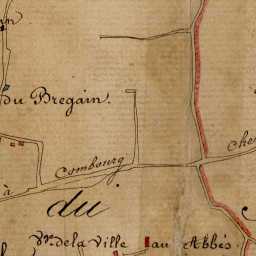 du Bregain.
Combourg
Che
à
du
Vᵗᵉ de la Ville au Abbés